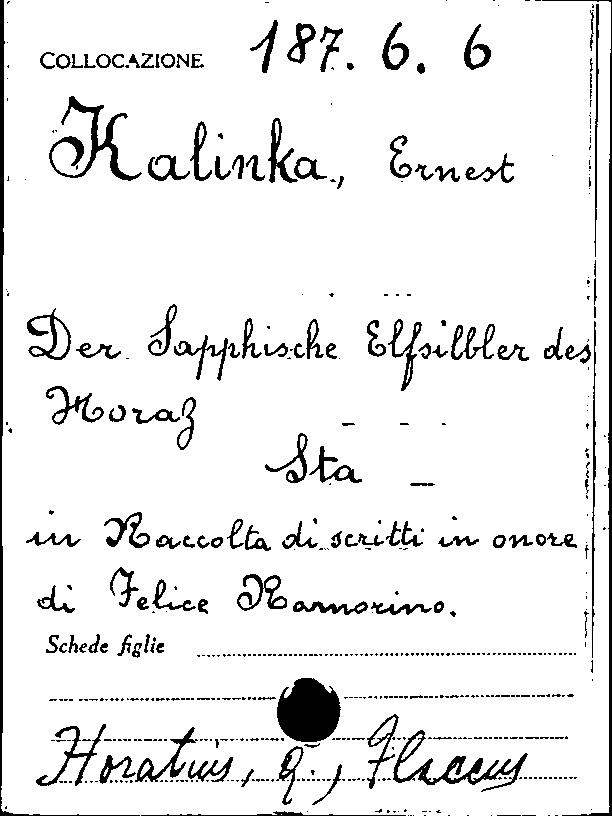 COLLOCAZIONE 187. 6. 6
Kalinka, Ernest
Der Sapphische Elfsilbler des
Horaz
Sta _
in Raccolta di scritti in onore
di Felice Ramorino.
Schede figlie
Horatius, q., Flaccus